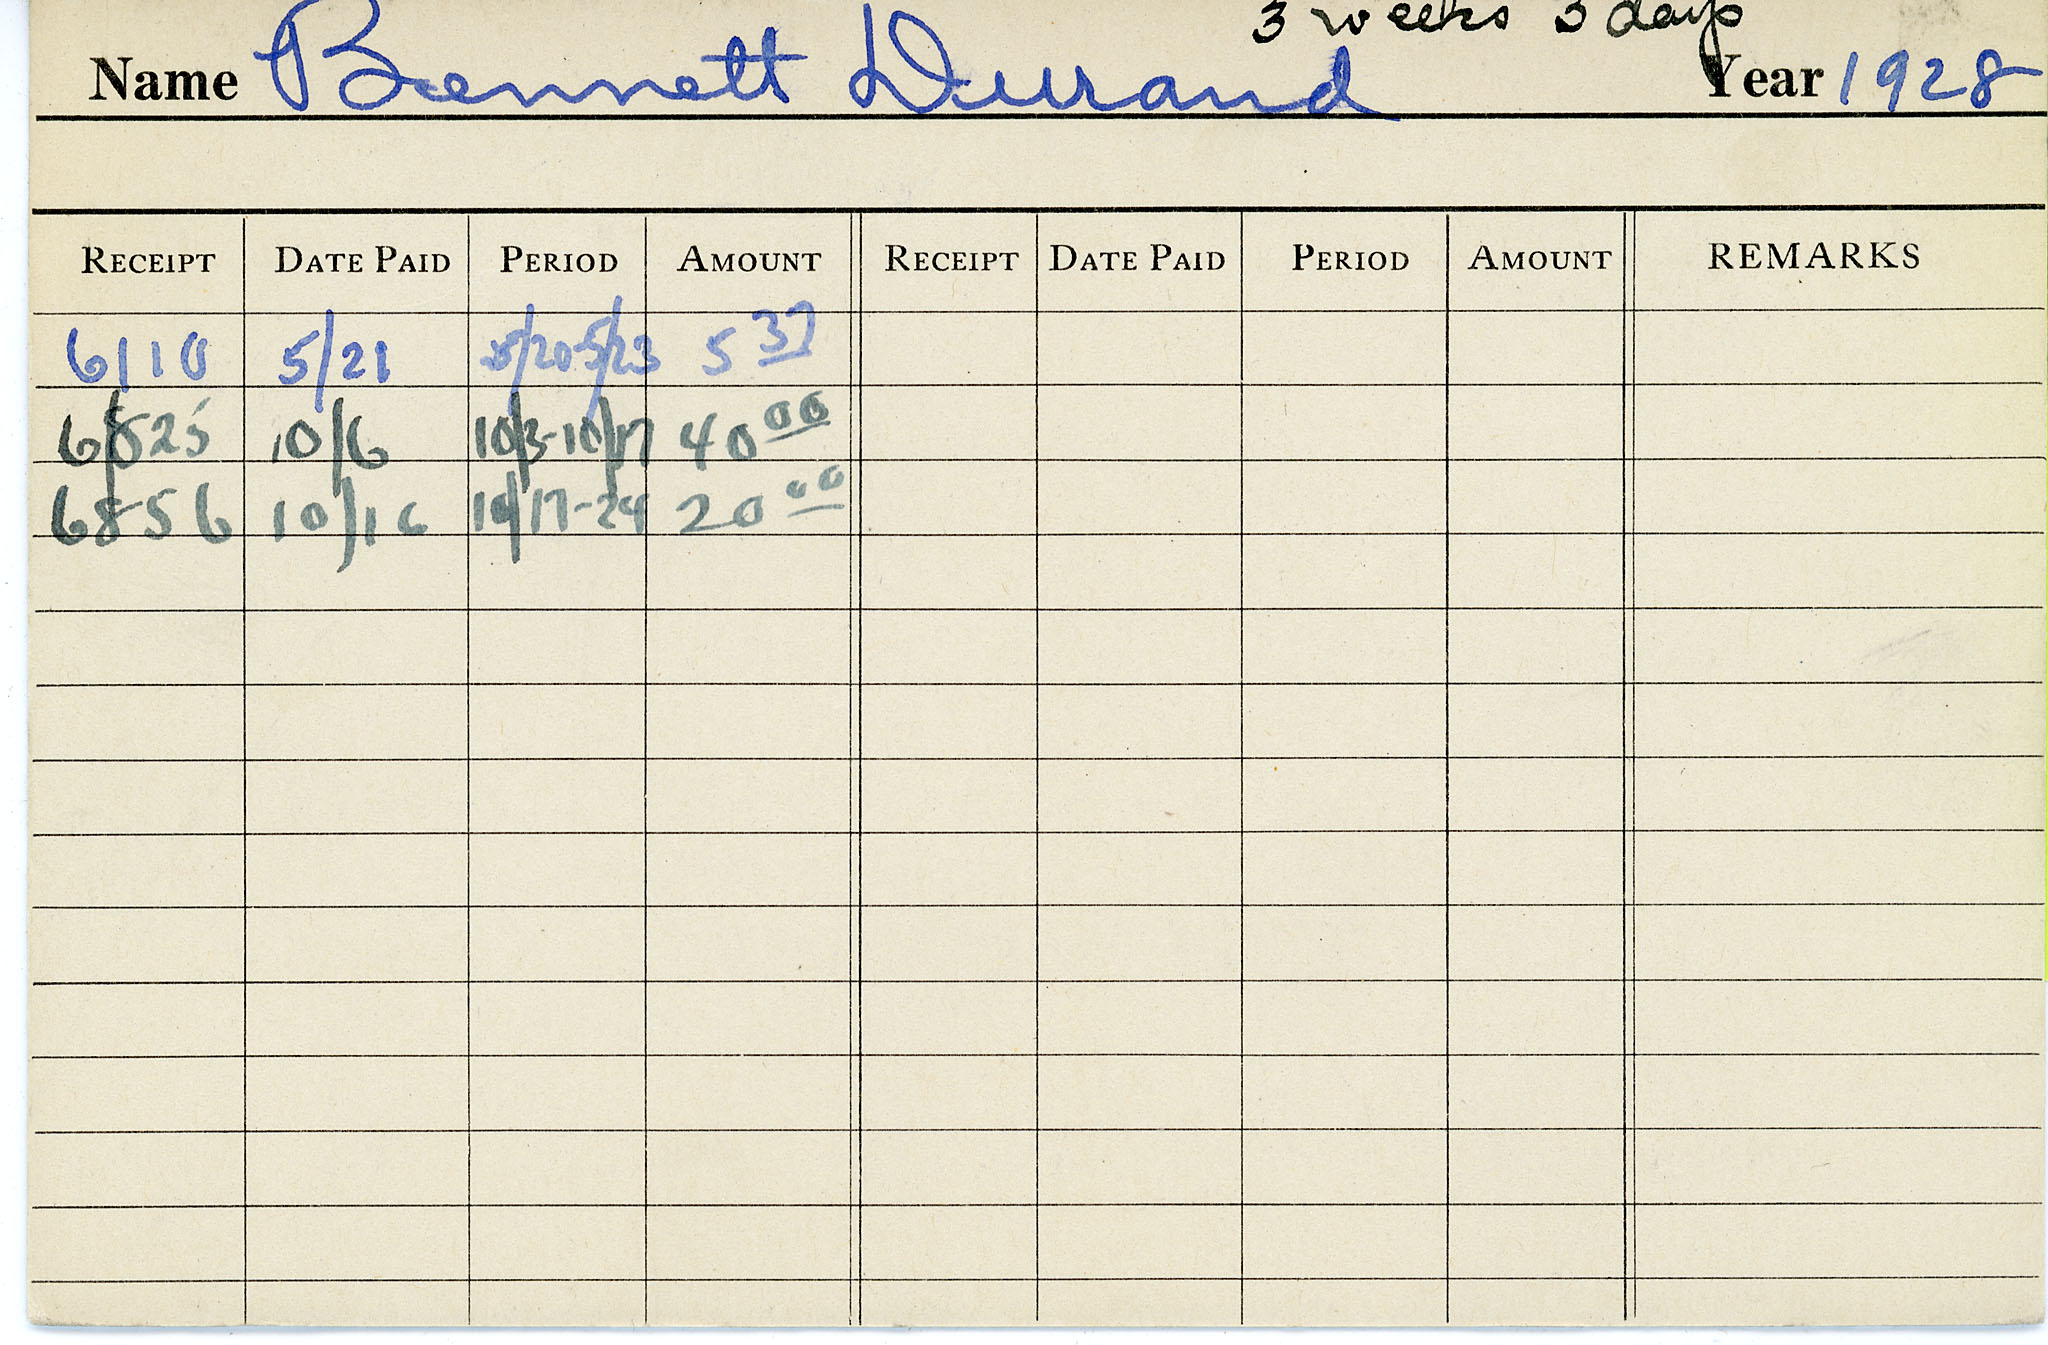 3 weeks 3 days
Name Bennett Durand Year 1928
RECEIPT DATE PAID PERIOD AMOUNT RECEIPT DATE PAID PERIOD AMOUNT REMARKS
6110 5/21 5/20-5/23 5 37
6825 10/6 10/3-10/17 40 00
6856 10/16 10/17-24 20 00